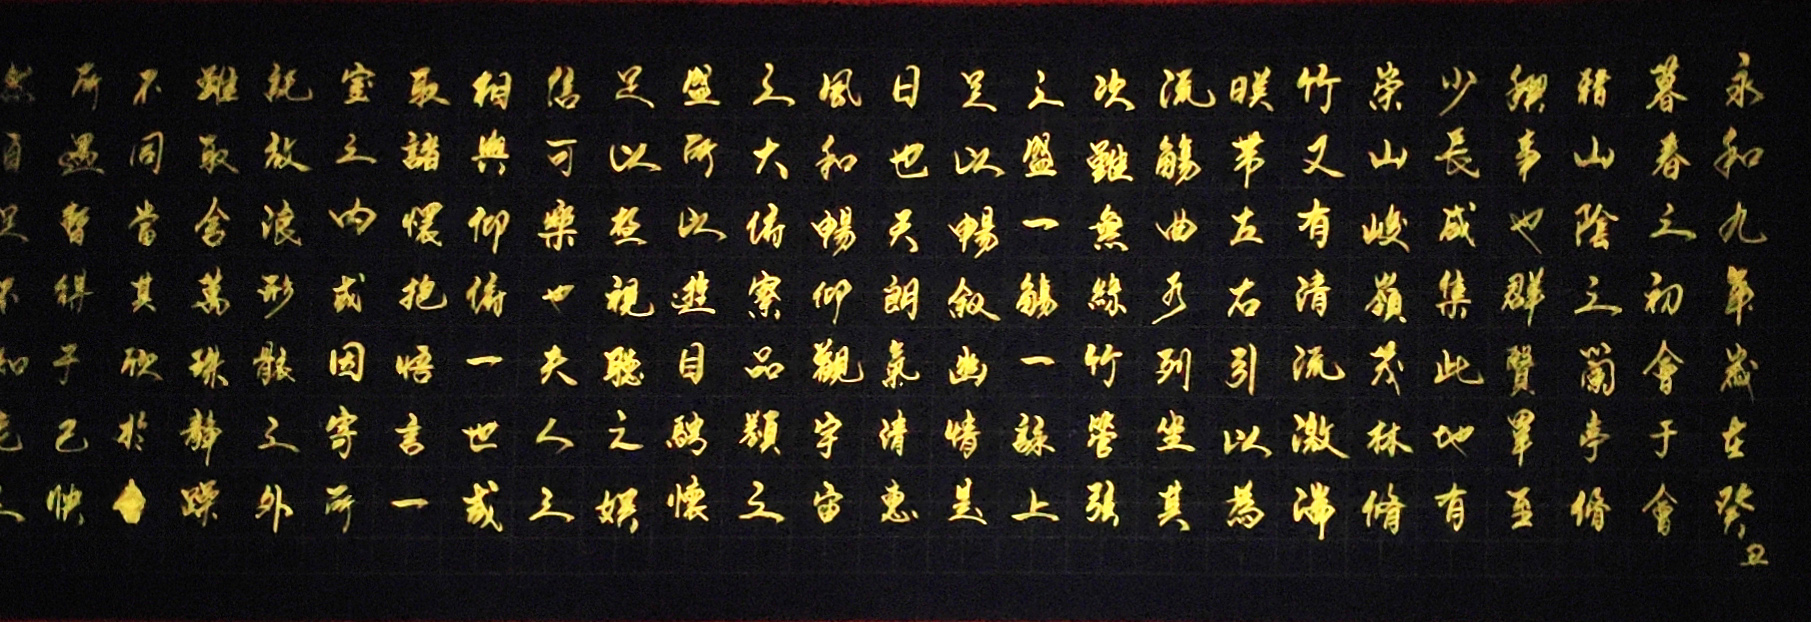 永和九年歲在癸丑
暮春之初會于會
稽山陰之蘭亭脩
稧事也群賢畢至
少長咸集此地有
崇山峻嶺茂林脩
竹又有清流激湍
暎帶左右引以為
流觴曲水列坐其
次雖無絲竹管弦
之盛一觴一詠上
足以暢叙幽情是
日也天朗氣清惠
風和暢仰觀宇宙
之大俯察品類之
盛所以遊目騁懷
足以極視聽之娛
信可樂也夫人之
相與仰俯一世或
取諸懷抱悟言一
室之內或因寄所
託放浪形骸之外
雖取舍萬殊靜躁
不同當其欣於
所遇暫得于己怏
然自足不知老之